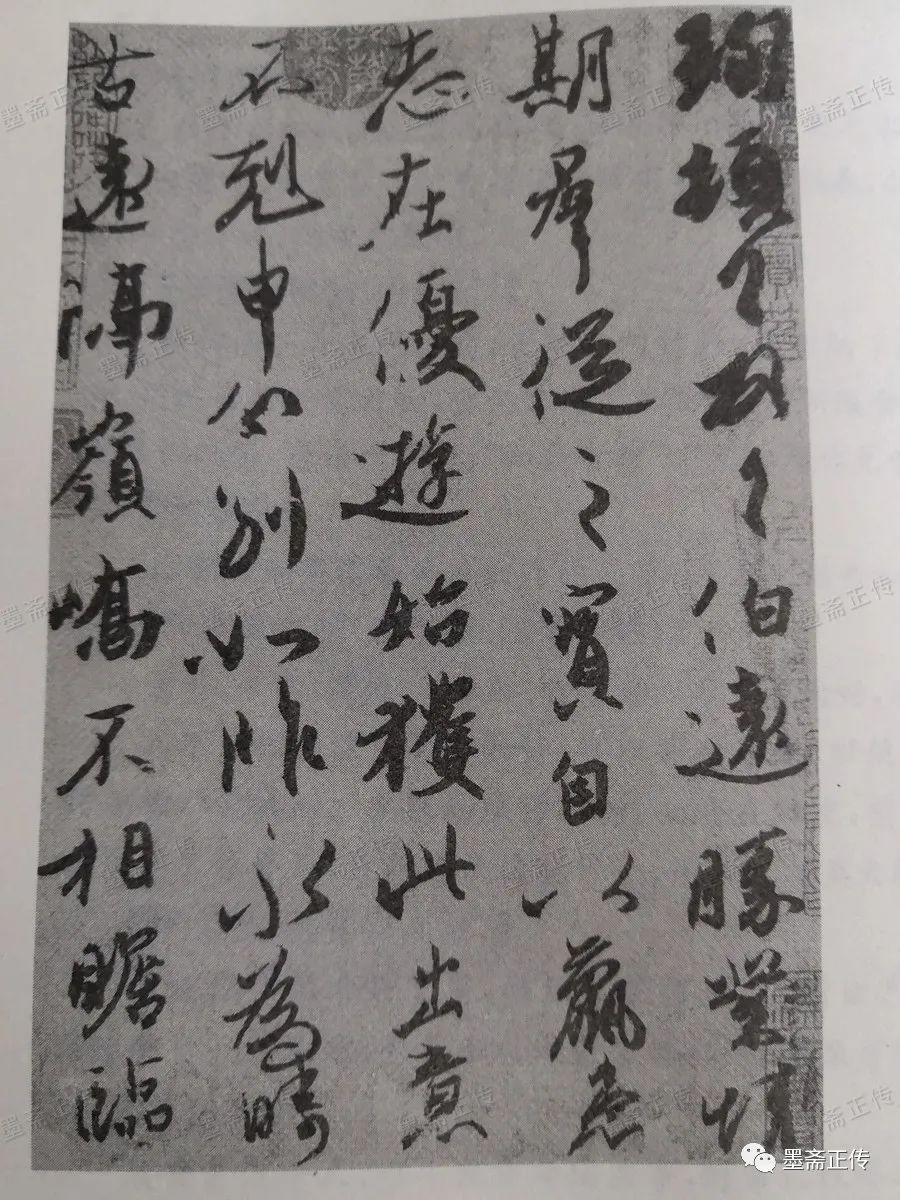 珣頓首頓首伯遠勝業情
期羣從之寶自以羸患
志在優遊始獲此出意
不剋申分別如昨永為疇
古遠隔嶺嶠不相瞻臨
墨斋正传